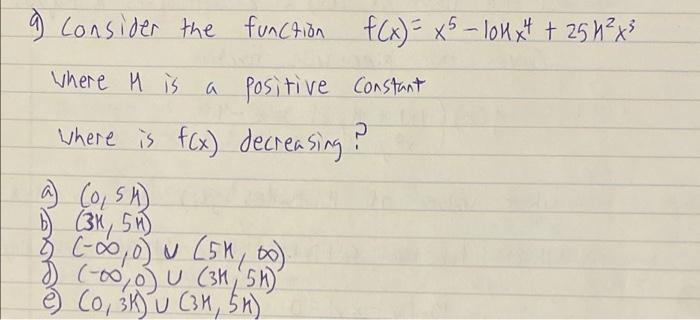 9) Consider the function f(x) = x⁵ - 10Hx⁴ + 25H²x³
where H is a positive constant
where is f(x) decreasing?
a) (0, 5H)
b) (3H, 5H)
c) (-∞, 0) ∪ (5H, ∞)
d) (-∞, 0) ∪ (3H, 5H)
e) (0, 3H) ∪ (3H, 5H)